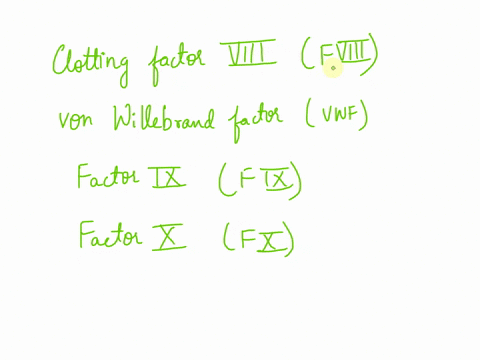 Clotting factor VIII (FVIII)
von Willebrand factor (VWF)
Factor IX (FIX)
Factor X (FX)